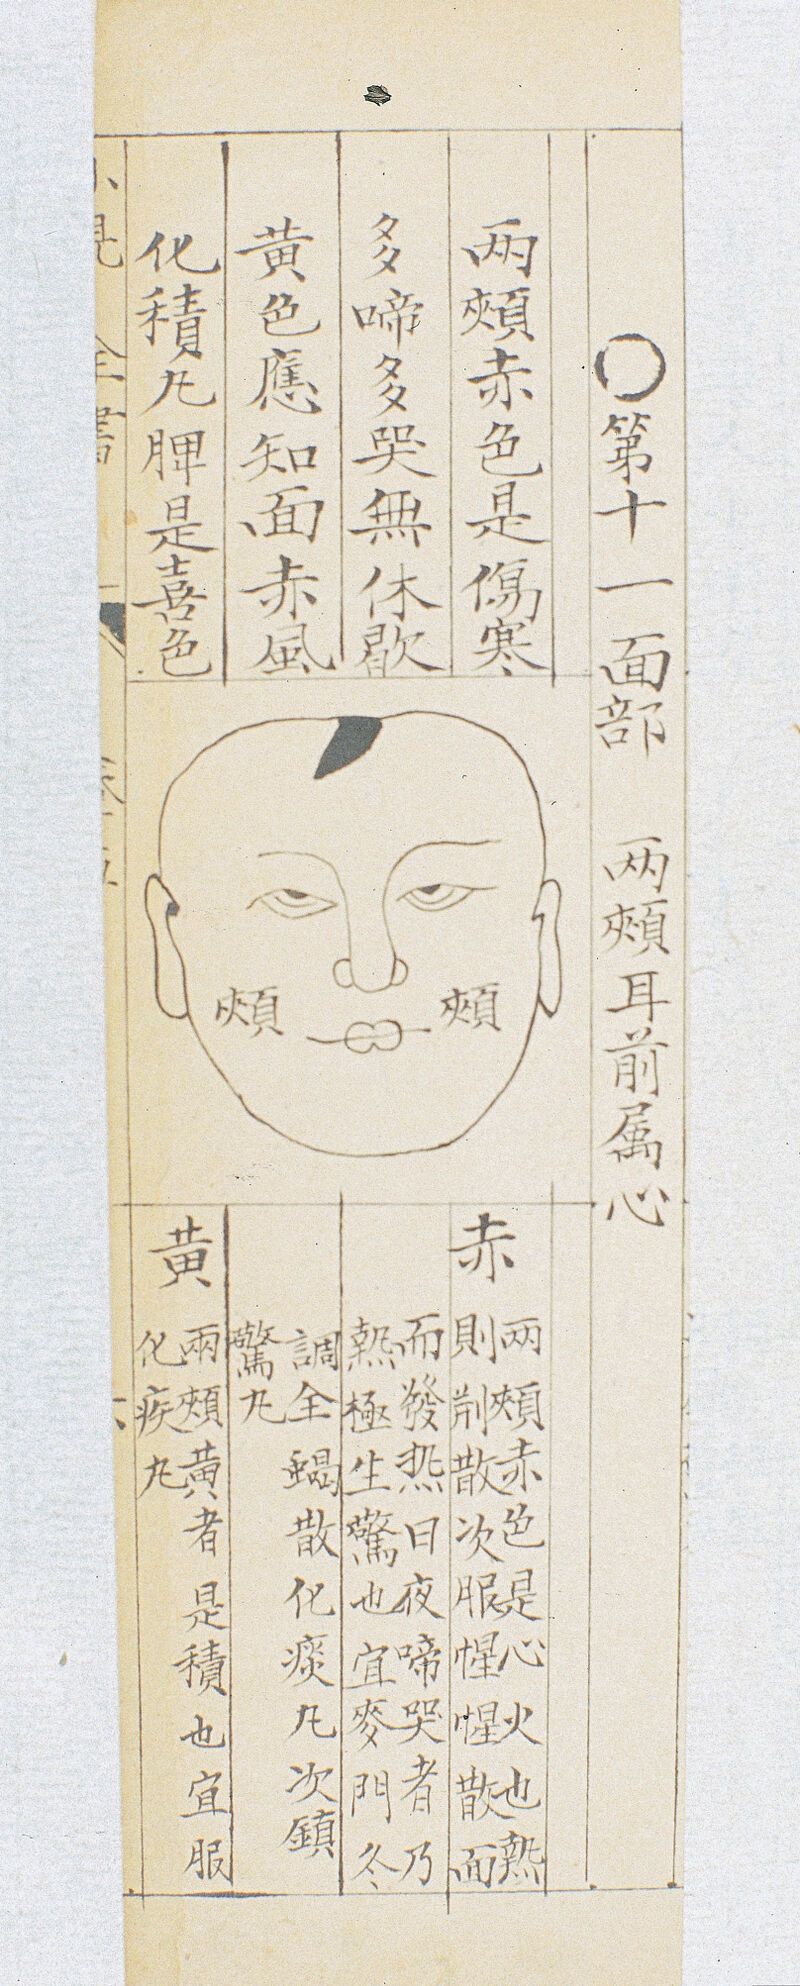 〇第十一面部　两頰耳前属心
两頰赤色是傷寒
多啼多哭無休歇
黄色應知面赤風
化積丸脾是喜色
頰
頰
赤
两頰赤色是心火也熱
則荊散次服惺惺散面
而發热日夜啼哭者乃
熱極生驚也宜麥門冬
調全蝎散化痰丸次鎮
驚丸
黄
兩頰黄者是積也宜服
化疾丸